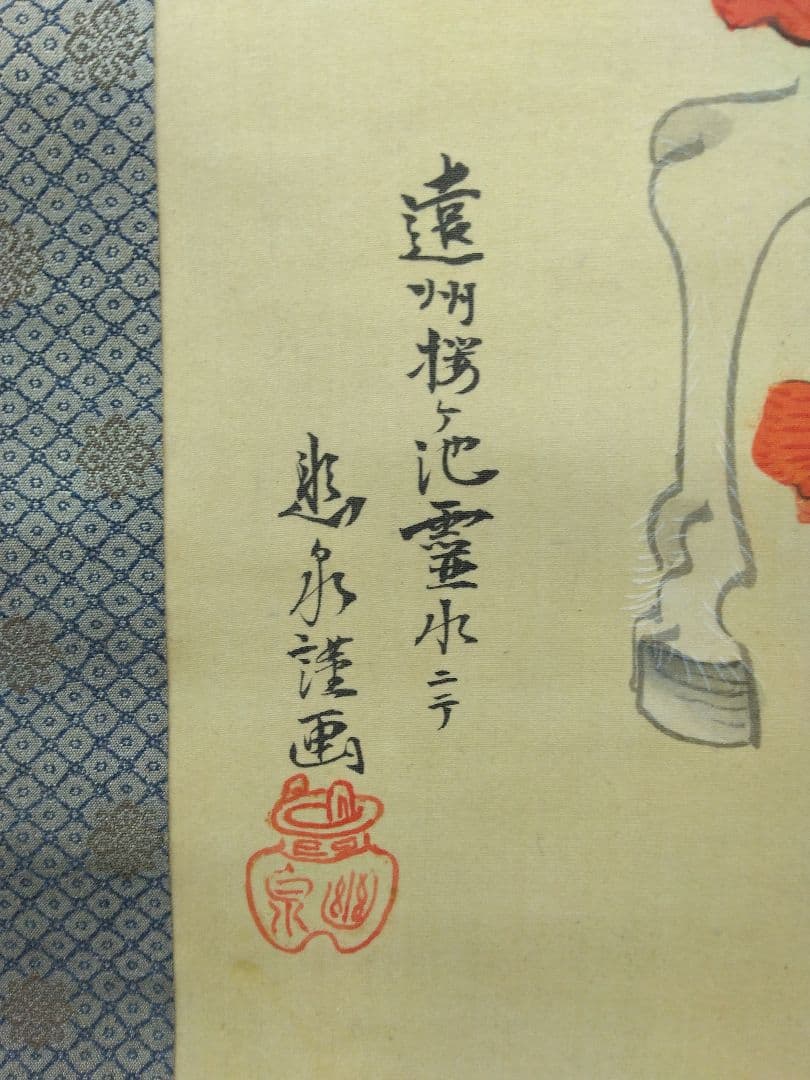 遠州桜ヶ池霊水ニテ
泉謹画
幽泉